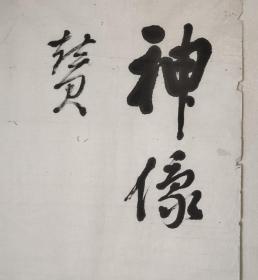 神像
贊